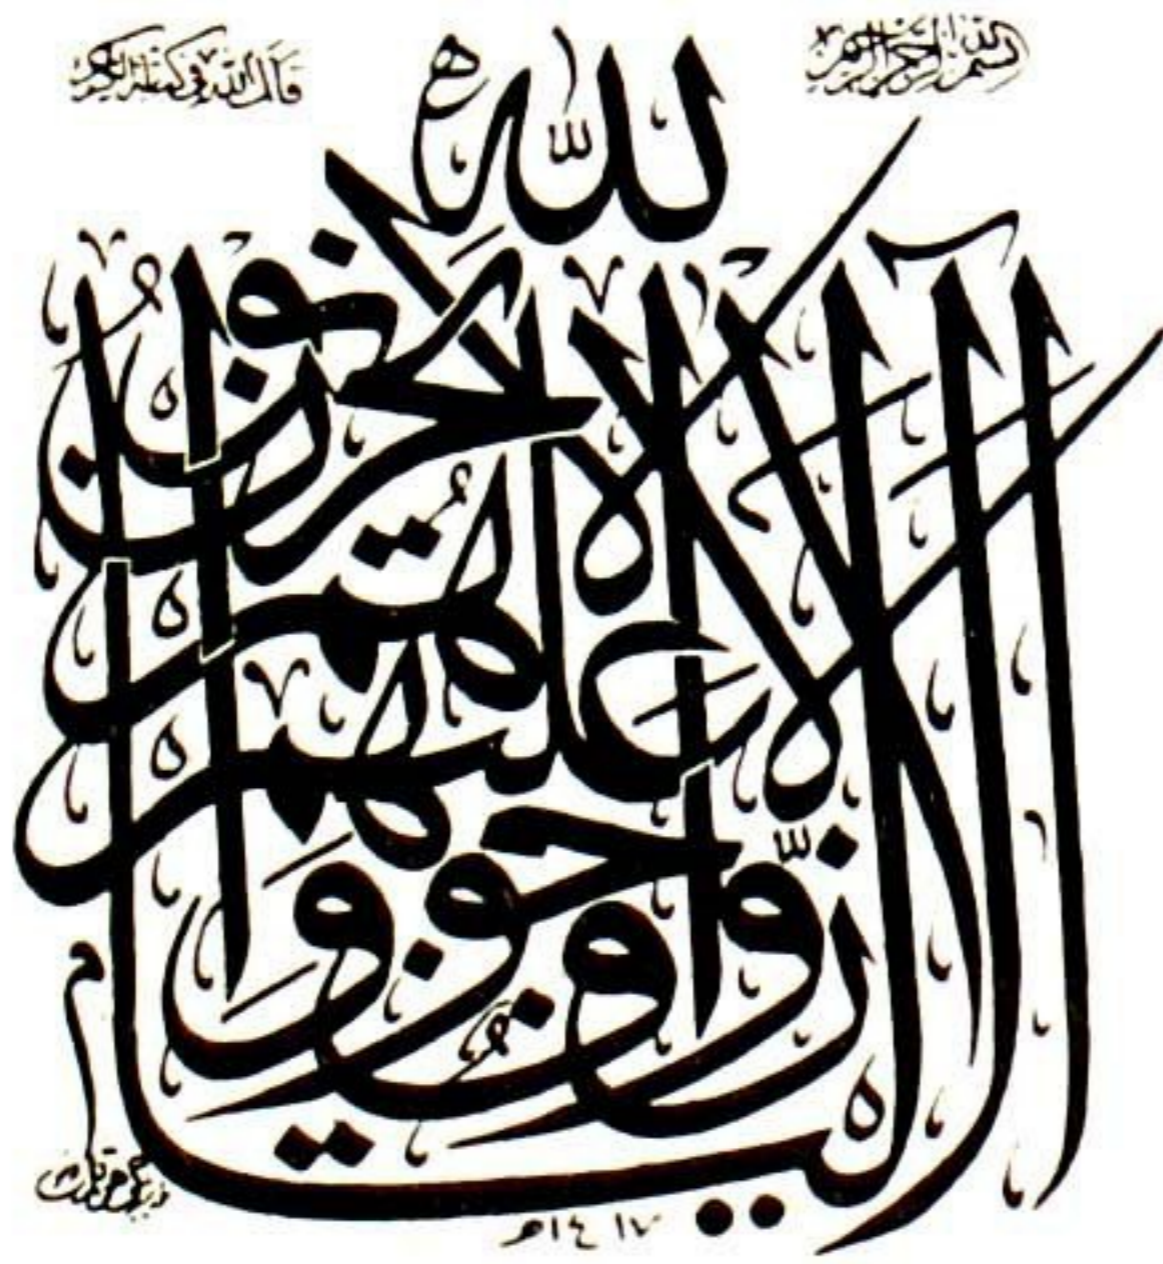 بسم الله الرحمن الرحيم
قال الله في كتابه الكريم
ألا إن أولياء الله لا خوف عليهم ولا هم يحزنون
١٤١٧هـ